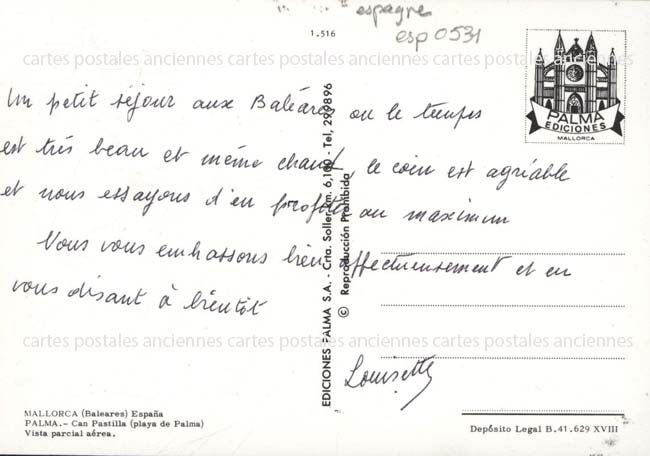 espagne
esp 0531
1.516
cartes postales anciennes cartes postales anciennes cartes postales anciennes
PALMA
EDICIONES
MALLORCA
Un petit séjour aux Baléares ou le temps
est très beau et même chaud, le coin est agréable
et nous essayons d'en profiter au maximum
Nous vous embrassons bien affectueusement et en
vous disant à bientôt
Louisette
EDICIONES PALMA S.A. - Crta. Soller Km. 6,100 - Tel, 299896
© Reproducción Prohibida
cartes postales anciennes cartes postales anciennes cartes postales anciennes
cartes postales anciennes cartes postales anciennes cartes postales anciennes
MALLORCA (Baleares) España
PALMA.- Can Pastilla (playa de Palma)
Vista parcial aérea.
Depósito Legal B. 41.629 XVIII